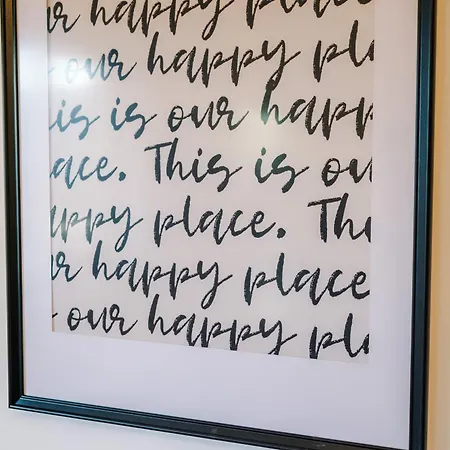 ur happy place
our happy pla
his is our happ
ace. This is ou
appy place. Thi
ur happy place
our happy pla